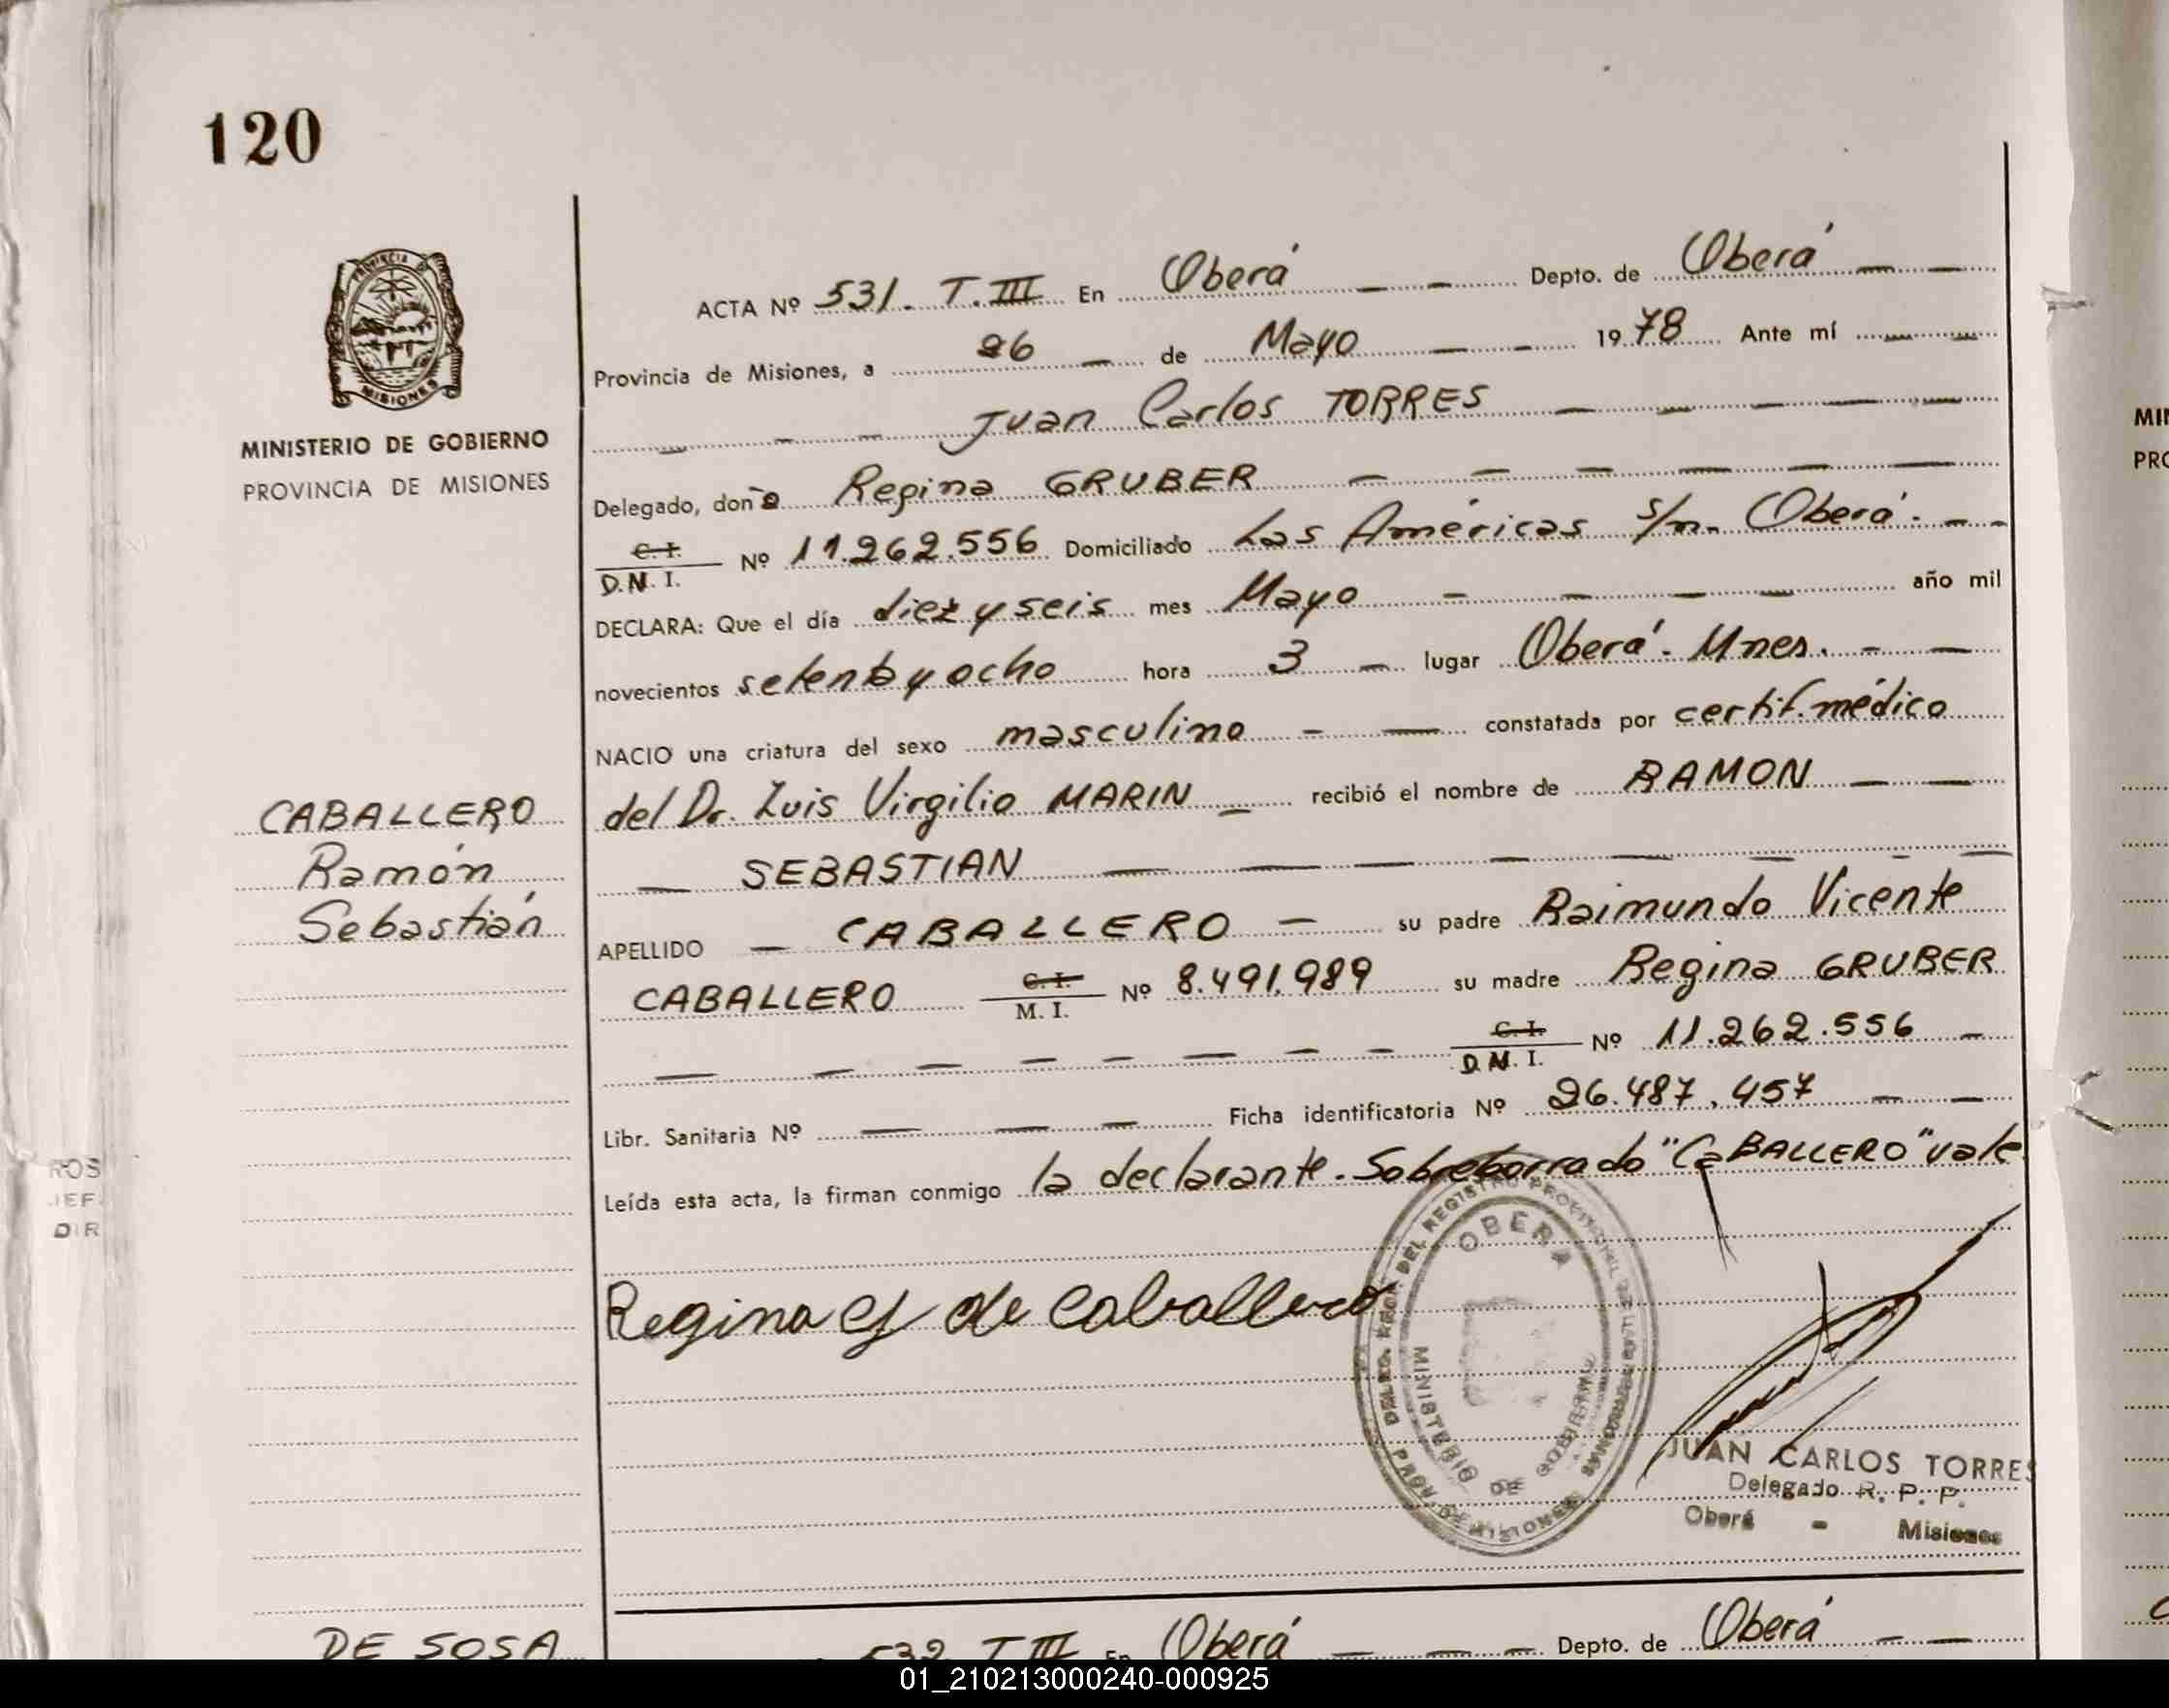 120
PROVINCIA DE
MISIONES
MINISTERIO DE GOBIERNO
PROVINCIA DE MISIONES
ACTA Nº 531. T. III En Oberá Depto. de Oberá
Provincia de Misiones, a 26 de Mayo 1978 Ante mí
Juan Carlos TORRES
Delegado, doña Regina GRUBER
C. I.
D.N.I. Nº 11.262.556 Domiciliado Las Américas s/n. Oberá.
DECLARA: Que el día diez y seis mes Mayo año mil
novecientos setenta y ocho hora 3 lugar Oberá. Mnes.
NACIO una criatura del sexo masculino constatada por certif. médico
del Dr. Luis Virgilio MARIN recibió el nombre de RAMON
SEBASTIAN
APELLIDO CABALLERO su padre Raimundo Vicente
CABALLERO C. I.
M. I. Nº 8.491.989 su madre Regina GRUBER
C. I.
D.N.I. Nº 11.262.556
Libr. Sanitaria Nº Ficha identificatoria Nº 26.487.457
Leída esta acta, la firman conmigo la declarante. Sobreborrado "CaBALLERO" vale
CABALLERO
Ramón
Sebastián
Regina G de Caballero
OBERA
MINISTERIO DE GOBIERNO
JUAN CARLOS TORRES
Delegado R. P. P.
Oberá - Misiones
DE SOSA
532 T III En Oberá Depto. de Oberá
ROS
JEF.
DIR
MIN
PRO
01_210213000240-000925